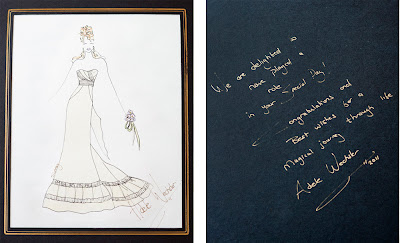 Adele Wechsler
We are delighted to
have played a
role
in your Special Day!
Congratulations and
Best wishes for a
Magical journey through life
Adele Wechsler
"2011"